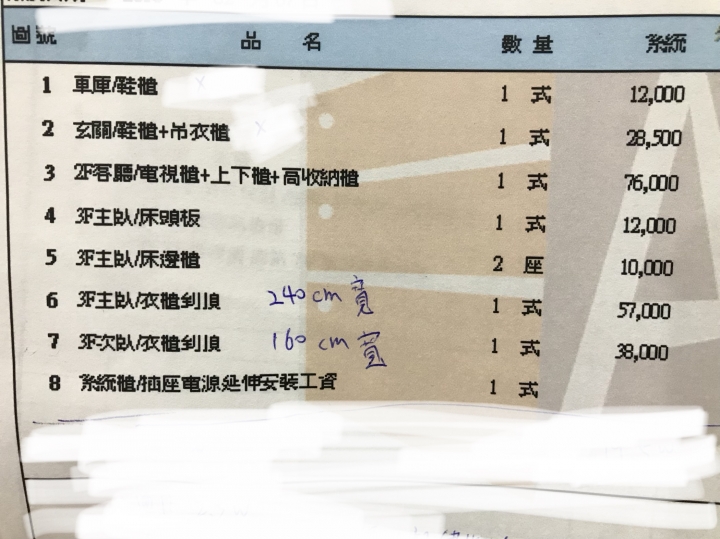 圖號 品名 數量 系統
1 車庫/鞋櫃 1 式 12,000
2 玄關/鞋櫃+吊衣櫃 1 式 28,500
3 2F客廳/電視櫃+上下櫃+高收納櫃 1 式 76,000
4 3F主臥/床頭板 1 式 12,000
5 3F主臥/床邊櫃 2 座 10,000
6 3F主臥/衣櫃到頂 240cm寬 1 式 57,000
7 3F次臥/衣櫃到頂 160cm寬 1 式 38,000
8 系統櫃/插座電源延伸安裝工資 1 式